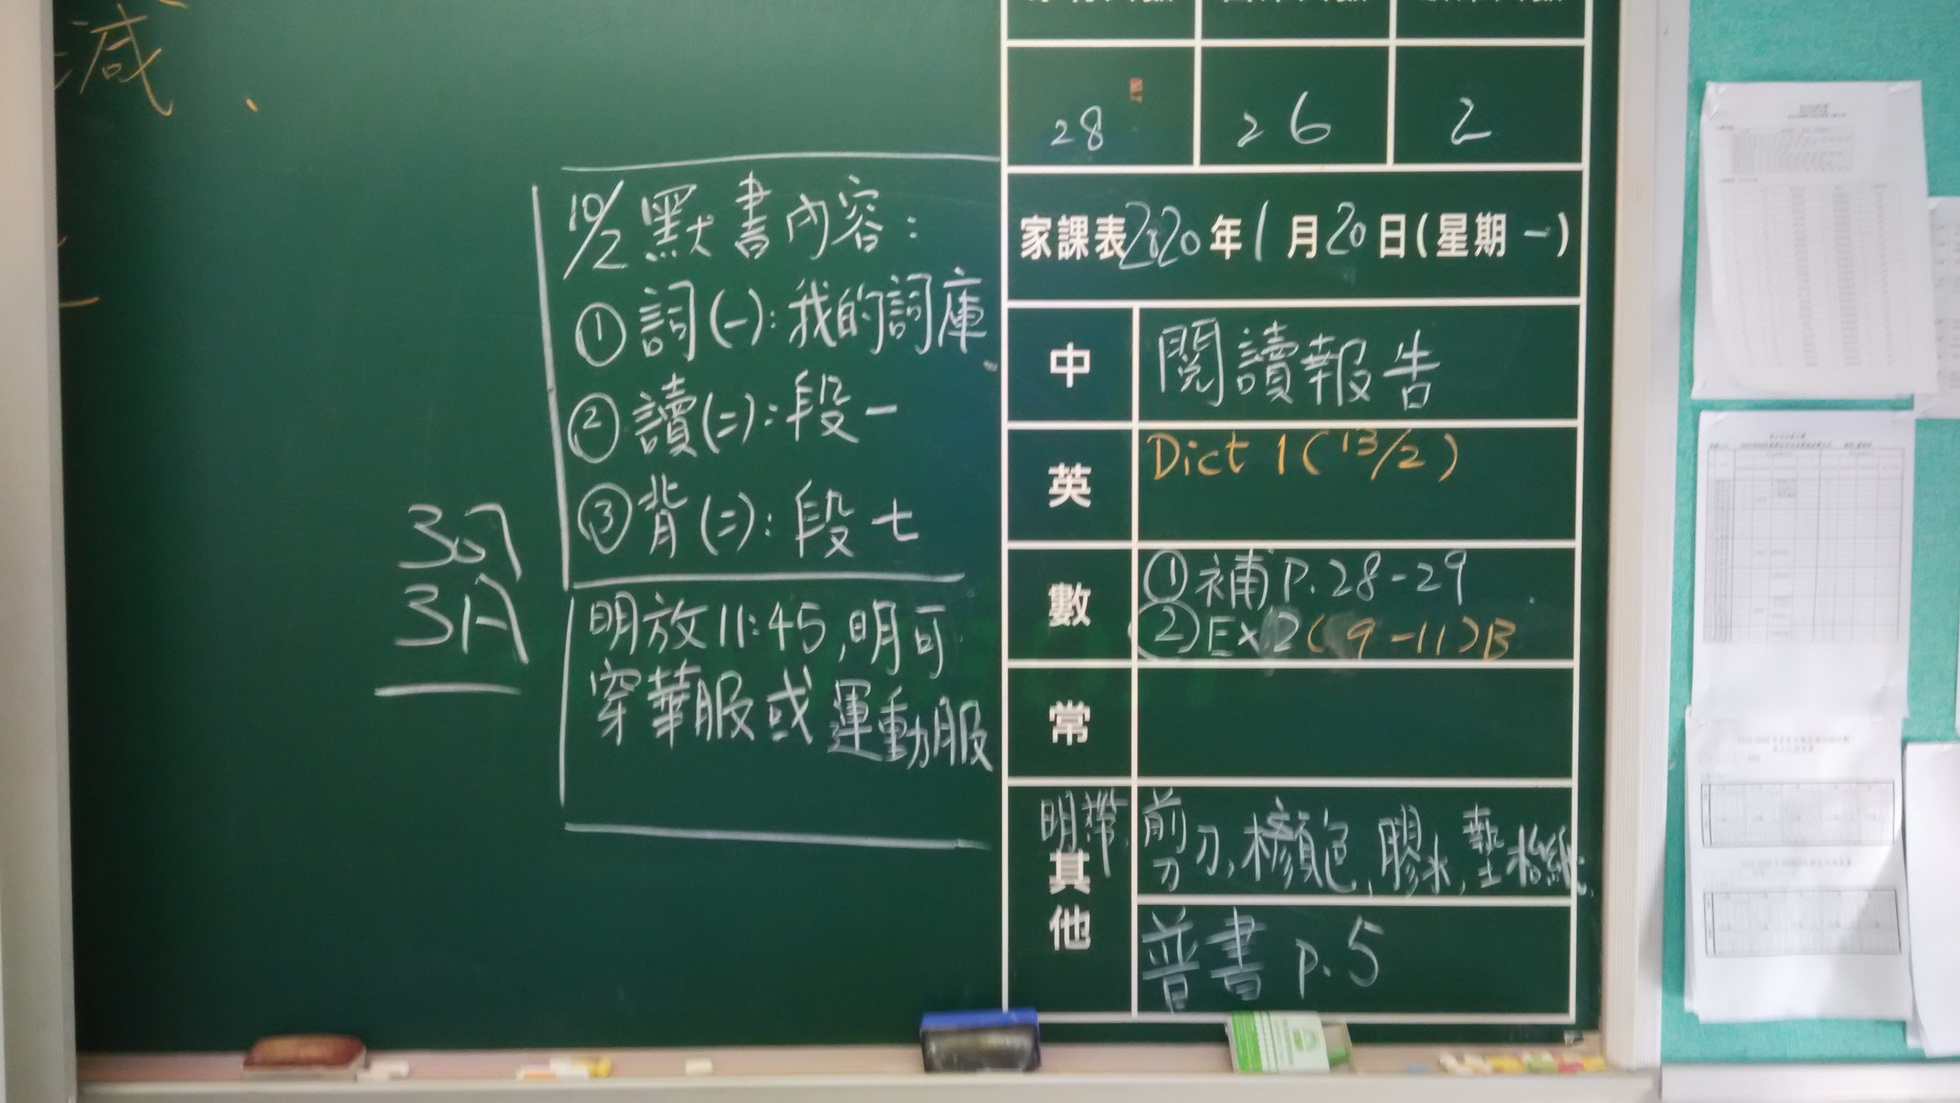 減
10/2 默書內容：
① 詞(一)：我的詞庫
② 讀(二)：段一
③ 背(二)：段七
307
3A
明放11:45,明可
穿華服或運動服
28 26 2
家課表2020年1月20日(星期一)
中 閱讀報告
英 Dict 1 (13/2)
數 ① 補 P.28-29
② Ex 2 (9-11)B
常
其他 明帶 剪刀, 顏色, 膠水, 墊枱紙
普書 p.5